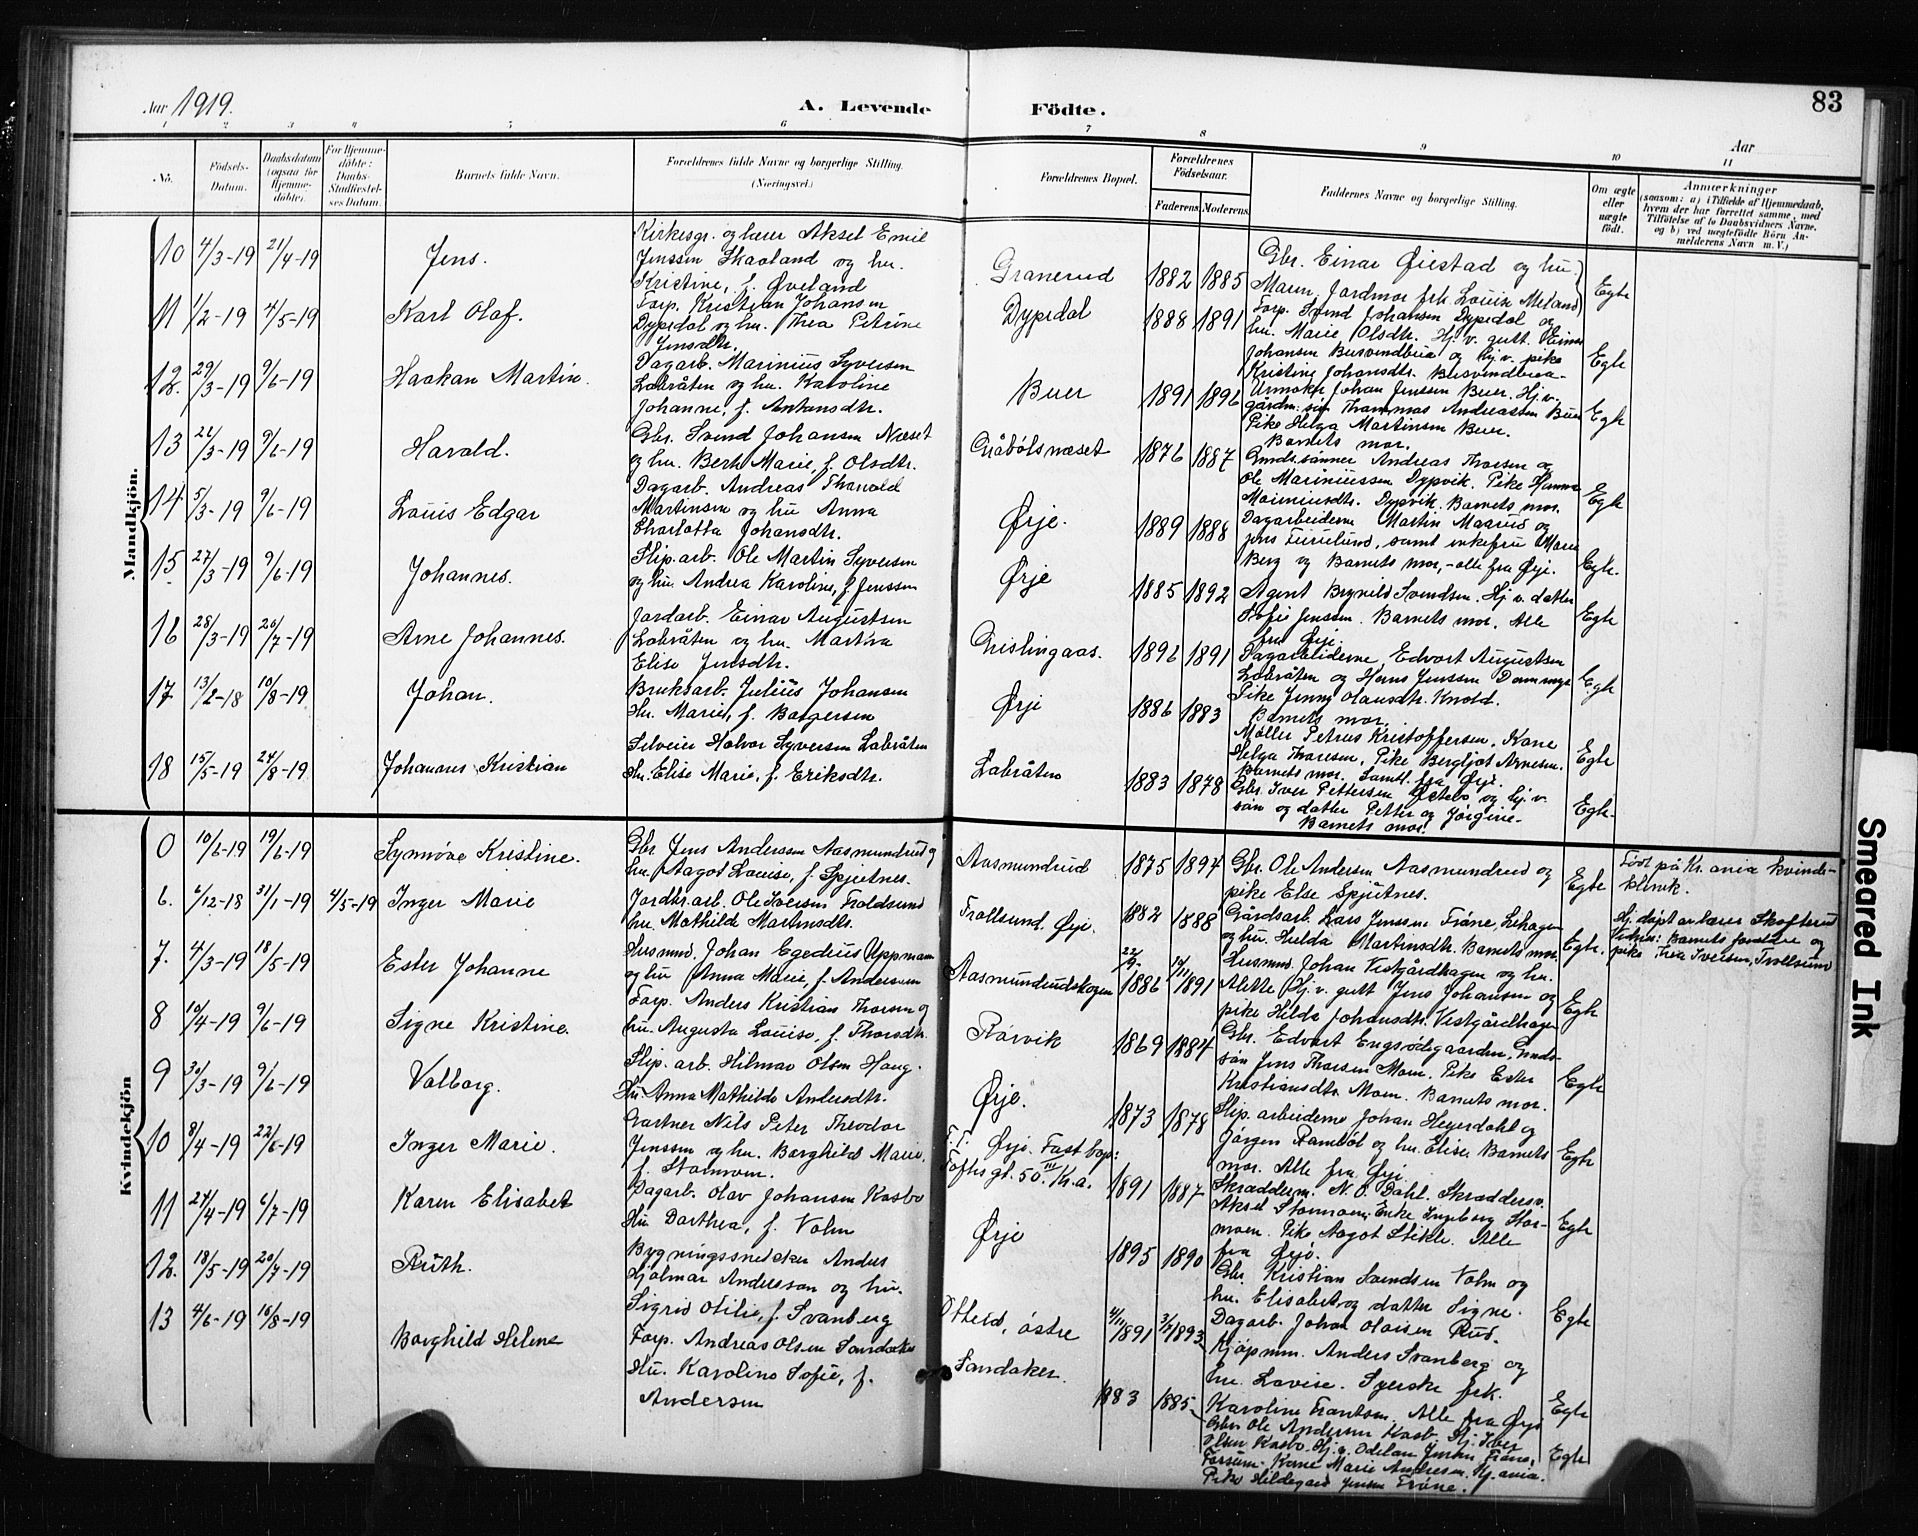 Aar 1919.
A. Levende Födte.
83
Aar
1 2 3 4 5 6 7 8 9 10 11
No.
Födsels-Datum.
Daabsdatum (ogsaa for Hjemme-döbte).
For Hjemme-döbte: Daabs-Stadfæstel-ses Datum.
Barnets fulde Navn.
Forældrenes fulde Navne og borgerlige Stilling. (Næringsvei.)
Forældrenes Bopæl.
Forældrenes Födselsaar.
Faderens. Moderens.
Faddernes Navne og borgerlige Stilling.
Om ægte eller uægte födt.
Anmærkninger
(saasom: a) i Tilfælde af Hjemmedaab, hvem der har forrettet samme, med Tilföielse af to Daabsvidners Navne, og b) ved uægtefödte Börn Anmelderens Navn m. V.)
Mandkjön.
10 4/3-19 21/4-19 Jens.
Kirkesgr. og lærer Aksel Emil
Jenssen Skaaland og hu.
Kristine, f. Øveland
Granerud 1882 1885
Gbr. Einar Øiestad og hu.
Maren. Jordmor frk Louise Meland
Egte
11 1/2-19 4/5-19 Karl Olaf.
Forp. Kristian Johansen
Dypedal og hu. Thea Petrine
Jensdtr.
Dypedal 1888 1891
Forp. Svend Johansen Dypedal og
hu. Marie Olsdtr. Hj. v. gutt. Einar
Johansen Busvindbeia og hj. v. pike
Kristine Johansdtr. Busvindbeia
Egte
12. 29/3-19 9/6-19 Haakan Martin.
Dagarb. Marinius Syversen
Labråten og hu. Karoline
Johanne, f. Antonsdtr.
Buer 1891 1896
Urmaker Johan Jenssen Buer. Hj. v.
gårdm. søn Thommas Andreassen Buer
Pike Helga Martinsen Buer.
Barnets mor.
Egte
13 21/3-19 9/6-19 Harald.
Gbr. Svend Johansen Næset
og hu. Berth Marie, f. Olsdtr.
Gåbølsnæset 1876 1887
Gmds. sønner Andreas Thorsen og
Ole Mariniussen Dypvik. Pike Hanna
Mariniusdtr. Dypvik. Barnets mor.
Egte
14 5/3-19 9/6-19 Louis Edgar
Dagarb. Andreas Tharald
Martinsen og hu Anna
Charlotta Johansdtr.
Ørje. 1889 1888
Dagarbeiderne Martin Maarud og
Jens Furulund, samt enkefru Marie
Berg og Barnets mor, - alle fra Ørje.
Egte.
15 27/3-19 9/6-19 Johannes.
Slip. arb. Ole Martin Syversen
og hu. Andrea Karoline, f. Jenssen
Ørje 1885 1892
Agent Brynild Svendsen. Hj. v. datter
Sofie Jenssen. Barnets mor. Alle
fra Ørje.
Egte
16 28/3-19 20/7-19 Arne Johannes.
Jordarb. Einar Augustsen
Labråten og hu. Martha
Elise Jensdtr.
Gislingaas. 1896 1891
Dagarbeiderne, Edvart Augustsen
Labråten og Hans Jenssen
Pike Jenny Olausdtr. Knold.
Barnets mor.
Egte
17 13/2-18 10/8-19 Johan.
Bruksarb. Julius Johansen
Hu. Marie, f. Borgersen
Ørje 1886 1883
Møller Petrus Kristoffersen. Kone
Helga Thoresen, Pike Bergljot Arnesen.
Barnets mor. Samtl. fra Ørje.
Egte
18 15/5-19 24/8-19 Johannes Kristian
Selveier Halvor Syversen Labråten
Hu. Elise Marie, f. Eriksdtr.
Labråten 1883 1878
Gbr. Iver Pettersen Østebø og hj. v.
søn og datter Petter og Jørgine.
Barnets mor.
Egte.
Kvindekjön
0 10/6-19 19/6-19 Synnöve Kristine.
Gbr Jens Anderssen Aasmundrud og
hu. Aagot Louise, f. Spjutnes.
Aasmundrud 1875 1894
Gbr. Ole Andersen Aasmundrud og
pike Else Spjutnes.
Egte
Födt på Kr.ania kvindeklinik.
6. 6/12-18 31/1-19 4/5-19 Inger Marie
Jordbr.arb. Ole Iversen Troldsund
hu. Mathilde Martinsdtr.
Trollsund. Ørje. 1882 1888
Gårdsarb. Lars Jenssen Fröne, Lihagen
og hu. Hulda Martinsdtr. Barnets mor.
Egte.
Hj. døpt av lærer Skofterud
Vidner: Barnets foreldre og
pike Thea Iversen, Trollsund
7. 4/3-19 18/5-19 Ester Johanne
Husmnd. Johan Egedius Uppmann
og hu Anna Marie, f. Andersen
Aasmundrudskogen 22/9-1886 14/11 1891
Husmnd. Johan Vestgårdhagen og hu.
Alette. Hj. v. gutt Jens Johansen og
pike Hilda Johansdtr. Vestgårdhagen
Egte
8 10/4-19 9/6-19 Signe Kristine.
Forp. Anders Kristian Thorsen og
hu. Augusta Louise, f. Thorsdtr.
Rørvik 1869 1884
Gbr. Edvart Engsødegaarden, Gmds-
søn Jens Thorsen Moen. Pike Ester
Kristiansdtr. Moen. Barnets mor.
Egte
9 30/3-19 9/6-19 Valborg.
Slip. arb. Hilmar Olsen Haug.
Hu. Anna Mathilde Andersdtr.
Ørje. 1873 1878
Slip. arbeiderne Johan Heyerdahl og
Jørgen Ramsøl og hu. Elise. Barnets
mor. Alle fra Ørje.
Egte
10 8/4-19 22/6-19 Inger Marie.
Gartner Nils Peter Theodor
Jenssen og hu. Borghild Marie,
f. Stomoen.
F.T. Ørje. Fast bop:
Toftes gt. 50. III Kr.a. 1891 1887
Skrædderm. N. O. Dahl. Skræddersv.
Aksel Stomoen, Enke Ingeborg Sto-
moen. Pike Aagot Stikle. Alle
fra Ørje.
Egte
11 27/4-19 6/7-19 Karen Elisabet
Dagarb. Olav Johansen Kasbo
Hu Dorthea, f. Volm
Ørje 1895 1890
Gbr. Kristian Svendsen Volm og
hu. Elisabet og datter Signe.
Dagarb. Johan Olaisen Rud.
Egte
12. 18/5-19 20/7-19 Ruth.
Bygningssnekker Anders
Hjalmar Andersson og hu.
Sigrid Otilie, f. Svanberg
Otteid, östre 4/11 1891 3/7 1893
Kjøpmn. Anders Svanberg og
hu. Lovise. Syerske frk.
Karoline Frantsen. Alle fra Ørje
Egte
13 4/6-19 10/8-19 Borghild Helene
Forp. Andreas Olsen Sandaker
Hu. Karoline Sofie, f.
Andersen
Sandaker. 1883 1885
Gbr. Ole Andersen Kasbo. Hj. Iver
Olsen Kasbo. Hj. v. Odilan Jensen Fröne,
Kone Marie Andresen. Kr.ania.
Pike Hildegard Jensen Fröne.
Egte
Smeared Ink